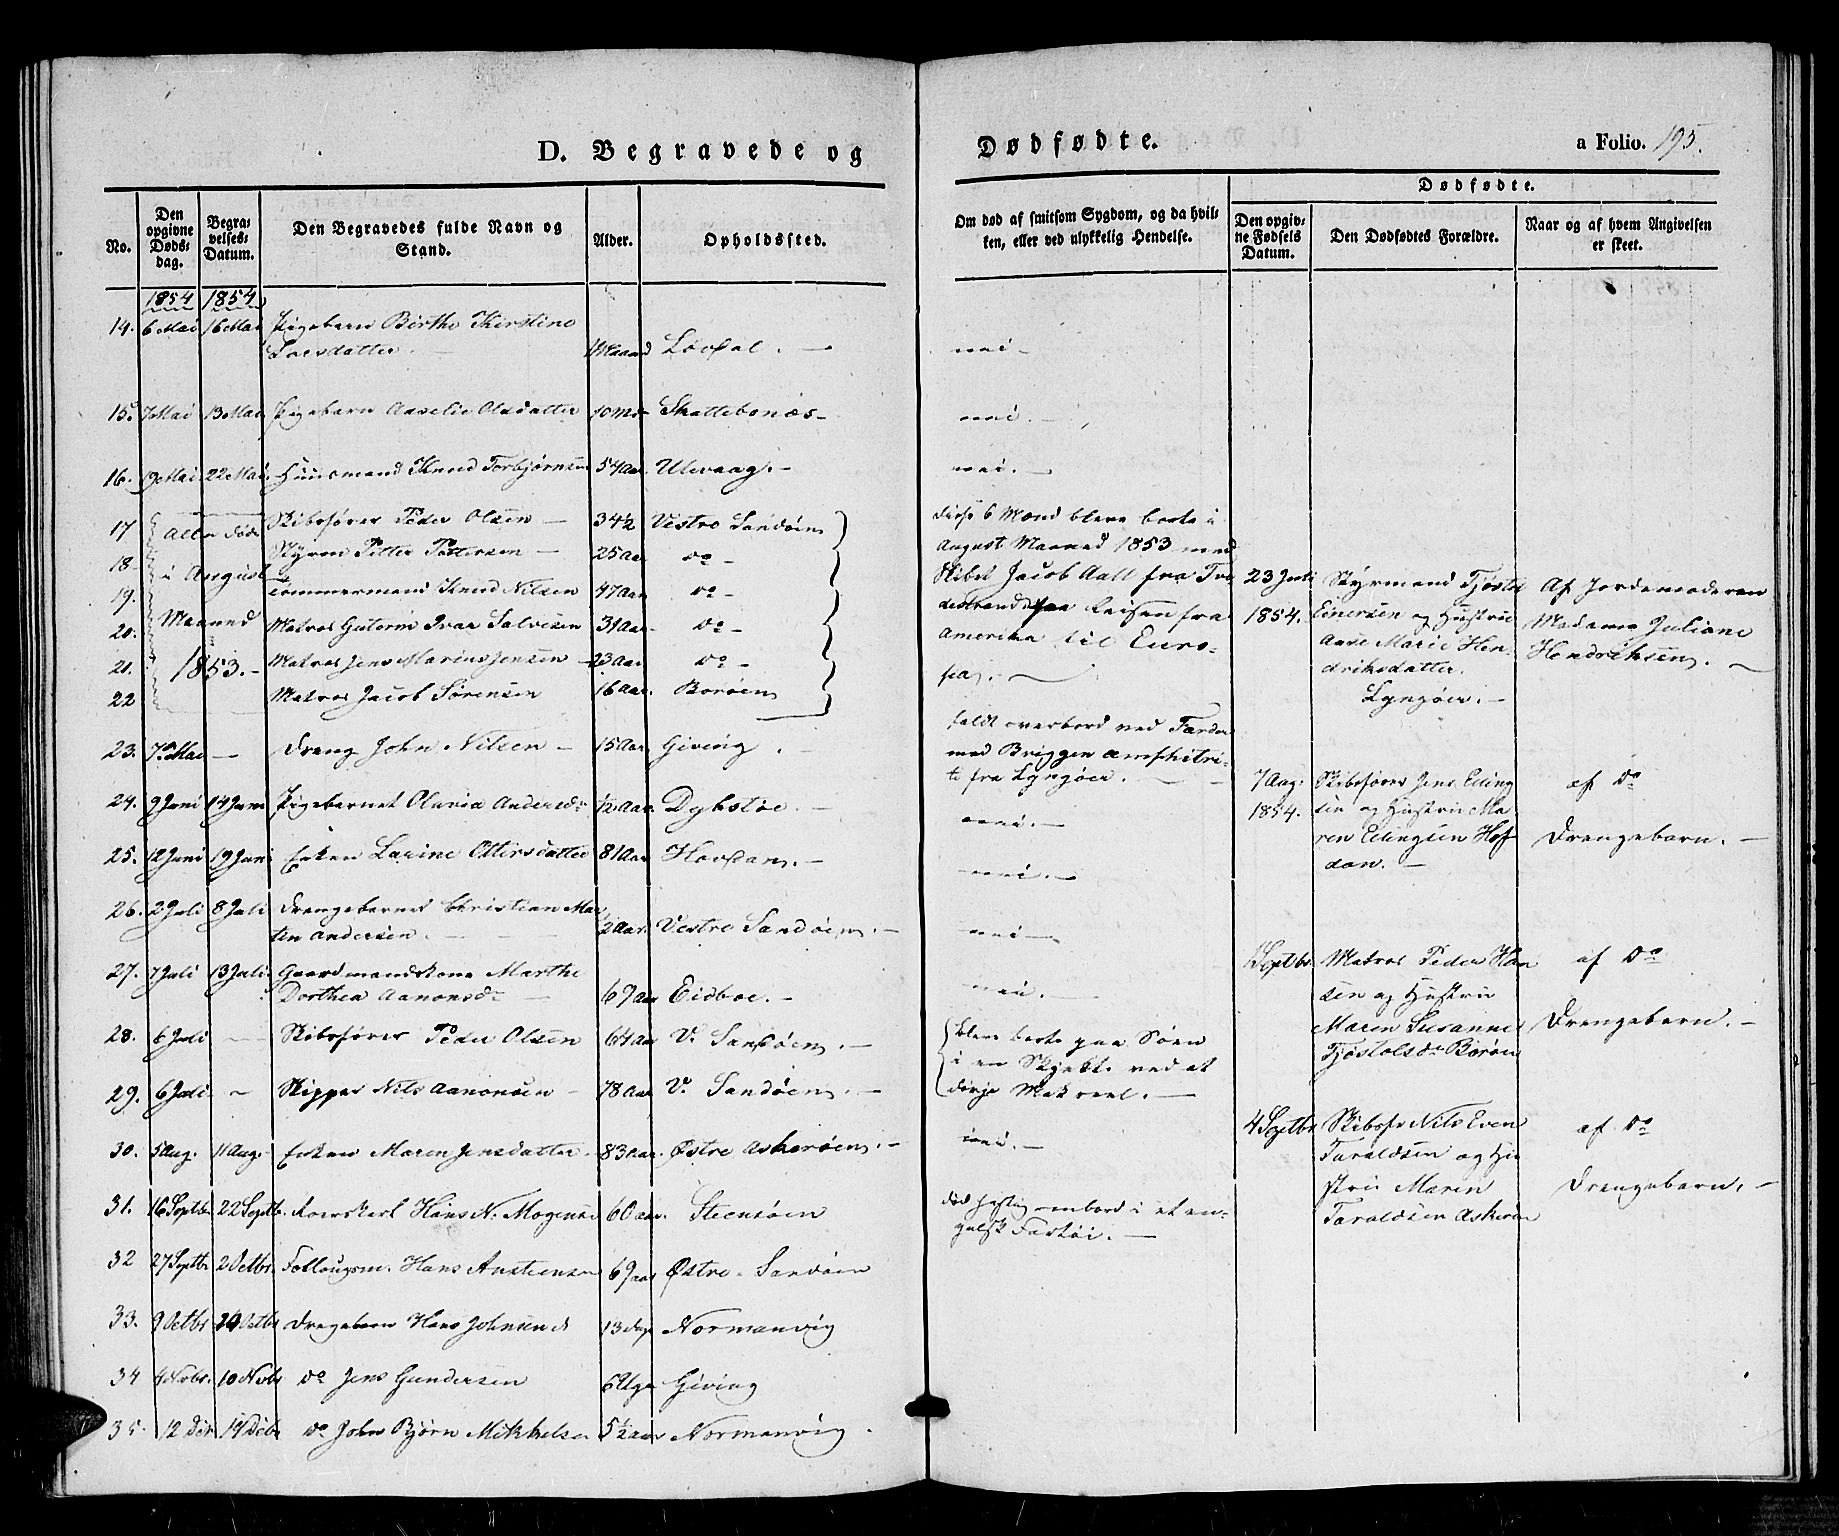 D. Begravede og Dødfødte.
a Folio. 195.
No.
Den opgivne Døds-dag.
Begra-velses-Datum.
Den Begravedes fulde Navn og Stand.
Alder.
Opholdssted.
Om død af smitsom Sygdom, og da hvil-
ken, eller ved ulykkelig Hendelse.
Dødfødte.
Den opgiv-ne Fødsels Datum.
Den Dødfødtes Forældre.
Naar og af hvem Angivelsen er skeet.
1854 1854
14. 6 Mai 16 Mai Pigebarn Birthe Kirstine
Larsdatter. 1 Maaned Lövdal. nei
15. 7 Mai 13 Mai Pigebarn Aaselie Olsdatter 10 Mr Skattebonæs nei.
16. 19 Mai 22 Mai Huusmand Knud Torbjørnsen 54 Aar Ulevaag. nei.
17 Alle døde Skibsfører Peder Olsen 34½ Vestre Sandøen
18 i August Styrm Petter Pettersen 25 Aar do
19. Tömmermand Knud Nilsen 47 Aar do
20. Maaned Matros Guttorm Ivar Salvesen 31 Aar do
21. 1853. Matros Jens Marius Jensen 23 Aar do
22 Matros Jacob Sørensen 16 Aar. Borøen
disse 6 Mænd bleve borte i
August Maaned 1853 med
Skibet Jacob Aall fra Tve
destrand paa Reisen fra
Amerika til Euro-
pa.
23. 7de Mai Dreng John Nilsen 15 Aar Giving.
faldt overbord ved Færder
med Briggen Amphitri-
te fra Lyngøer.
24. 9 Juni 14 Juni Pigebarnet Olavia Andersd. ½ Aar. Dybstøe. nei.
25. 12 Juni 19 Juni Enken Larine Ottersdatter 81 Aar Hovdan. nei.
26. 2 Juli 8 Juli Drengebarnet Christian Mar
tin Andersen. ½ Aar. Vestre Sandøen. nei
27. 7 Juli 13 Juli. Gaardmandskone Marthe
Dorthea Aanonsd. 67 Aar Eidboe. nei.
28. 6 Juli Skibsfører Peder Olsen 64 Aar V. Sandøen.
29. 6 Juli Skipper Nils Aanonsen 78 Aar V. Sandøen.
bleve borte paa Søen
i en Skjekte ved at
dørje Makreel.
30. 5 Aug. 11 Aug. Enken Maren Jensdatter 83 Aar. Østre Askerøen. nei.
31. 16 Septbr 22 Septb. Kaarskarl Hans N. Mogensen 60 Aar. Steensøen
død hastig ombord i et en-
gelsk Fartøi.
32 27 Septbr 2 Octbr. Follougsm. Hans Anstensen 69 Aar Østre Sandøen
33. 9 Octbr 14 Octbr Drengebarn Hans Johnsen 13 Dage Normanvig
34 4 Novbr. 10 Novbr do Jens Gundersen 6 Uger Giving
35. 12 Dec 19 Decbr do John Bjørn Mikkelsen 5½ Aar Normanvig.
23 Juli
1854.
Styrmand Tjøstel
Einersen og Hustrue
Anne Marie Hen-
driksdatter.
Lyngøer.
Af Jordemoderen
Madame Juliane
Hendriksen.
7 Aug.
1854.
Skibsfører Jens Elling
sen og Hustrue Ma-
ren Ellingsen Hof-
dan.
af do
Drengebarn.
1 Septbr. Matros Peder Han
sen og Hustrue
Maren Susanne
Tjøstolsd. Borøen
af do
Drengebarn.
4 Septbr Skibsfr Nils Even
Taraldsen og Hu-
strue Maren
Taraldsen Askerøen
af do
Drengebarn.